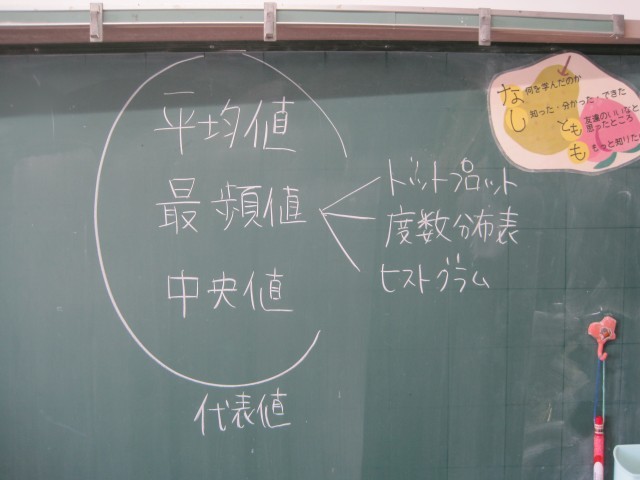 平均値
最頻値
中央値
代表値
ドットプロット
度数分布表
ヒストグラム
なし
何を学んだのか
知った・分かった・できた
とも
友達のいいなと
思ったところ
も
もっと知りた